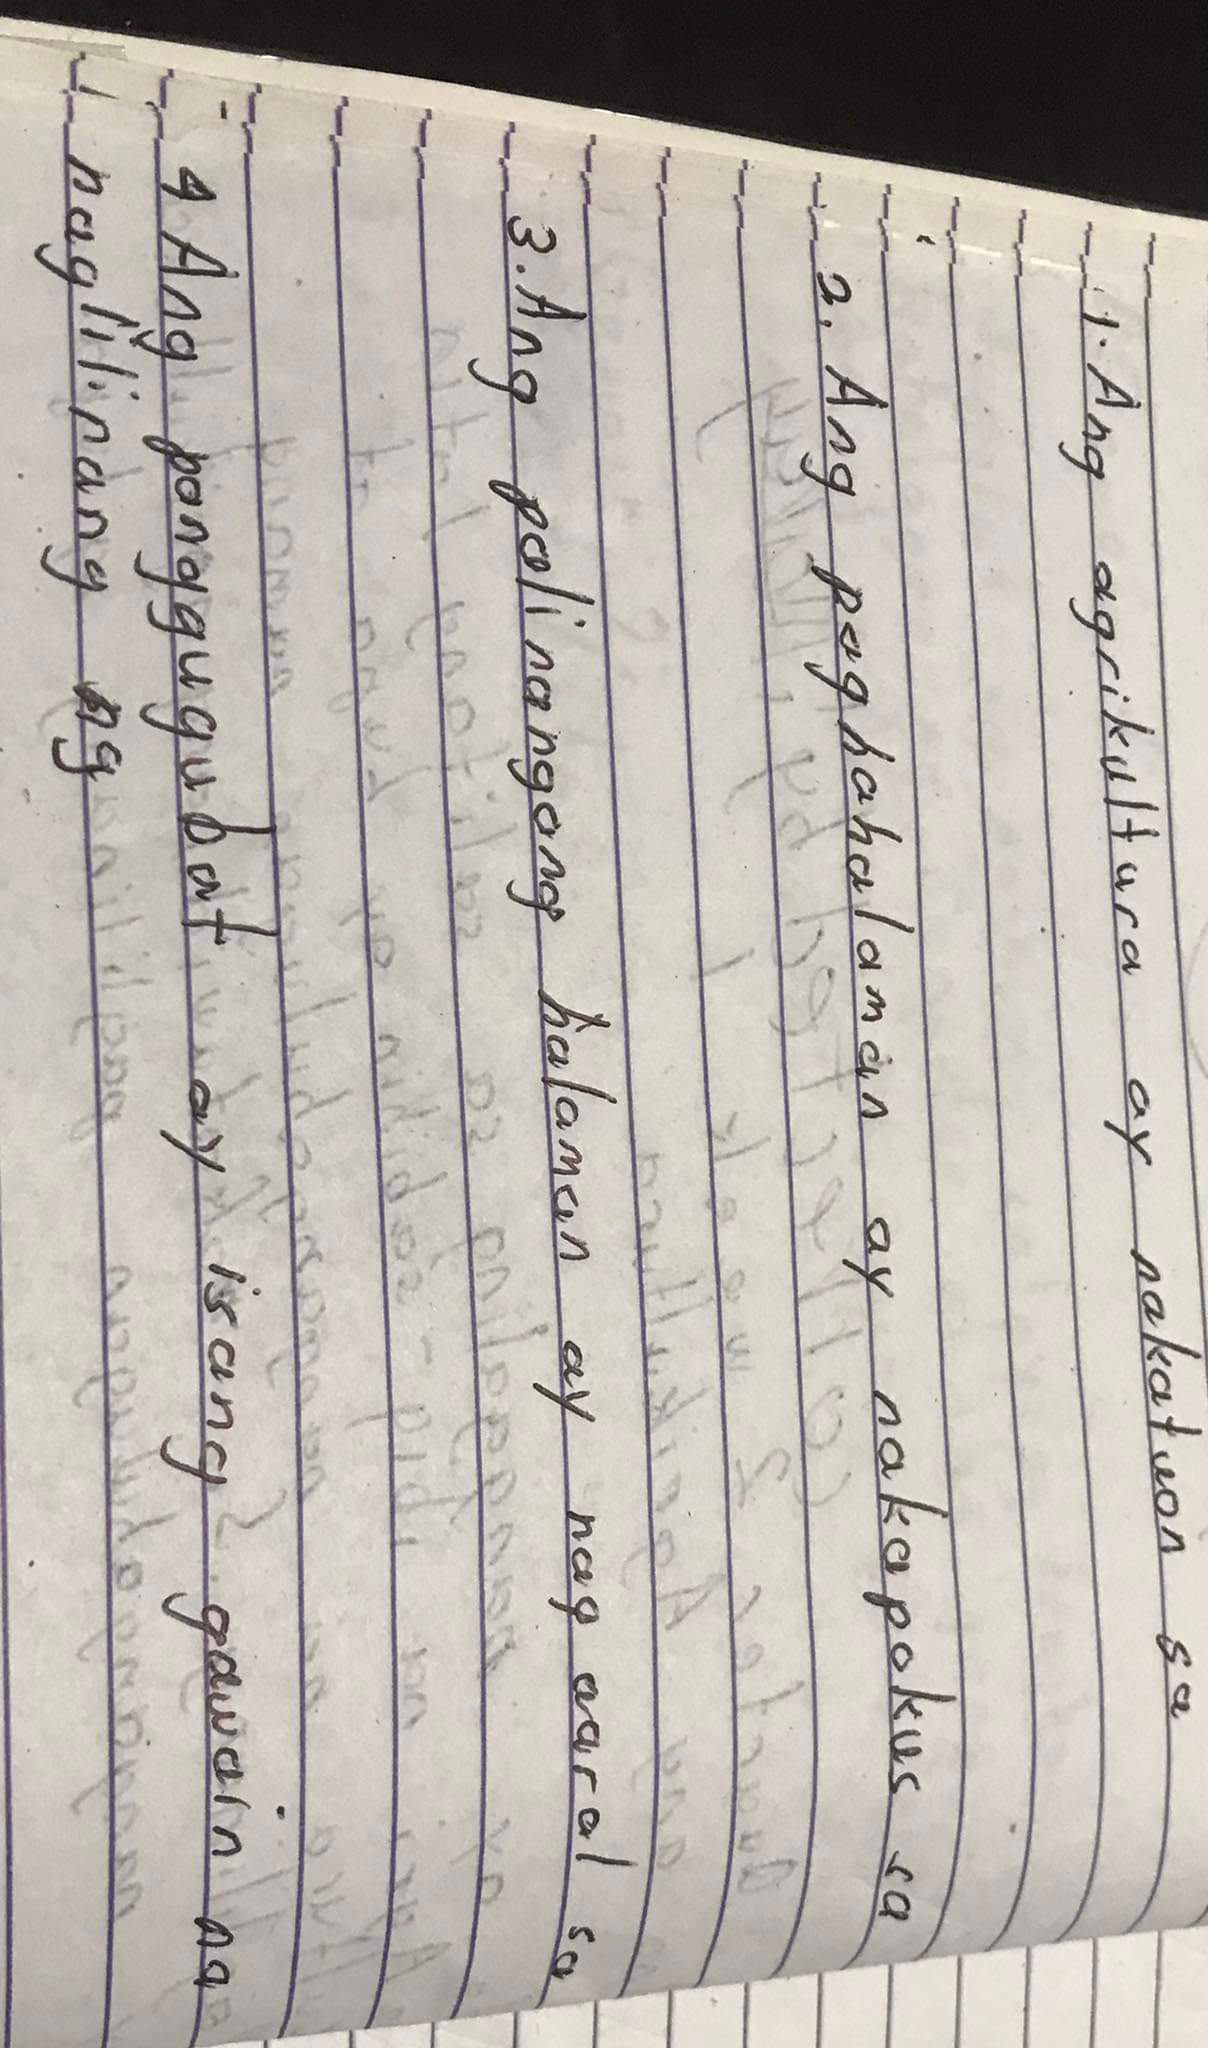 1. Ang agrikultura ay nakatuon sa
2. Ang paghahalaman ay nakapokus sa
3. Ang palinangang halaman ay nag aaral sa
4 Ang panggugubat ay isang gawain na
naglilinang ng